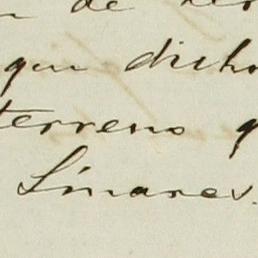 de
que dicho
terreno q
Linares.